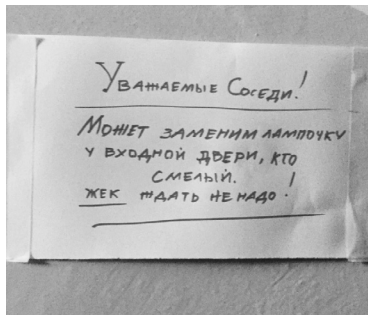 Уважаемые Соседи!
Может заменим лампочку
у входной двери, кто
смелый.
ЖЕК ждать не надо!